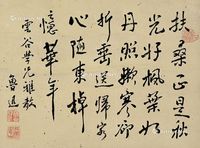 扶桑正是秋
光好楓葉如
丹照嫩寒卻
折垂送歸客
心隨東棹
憶華年
魯迅